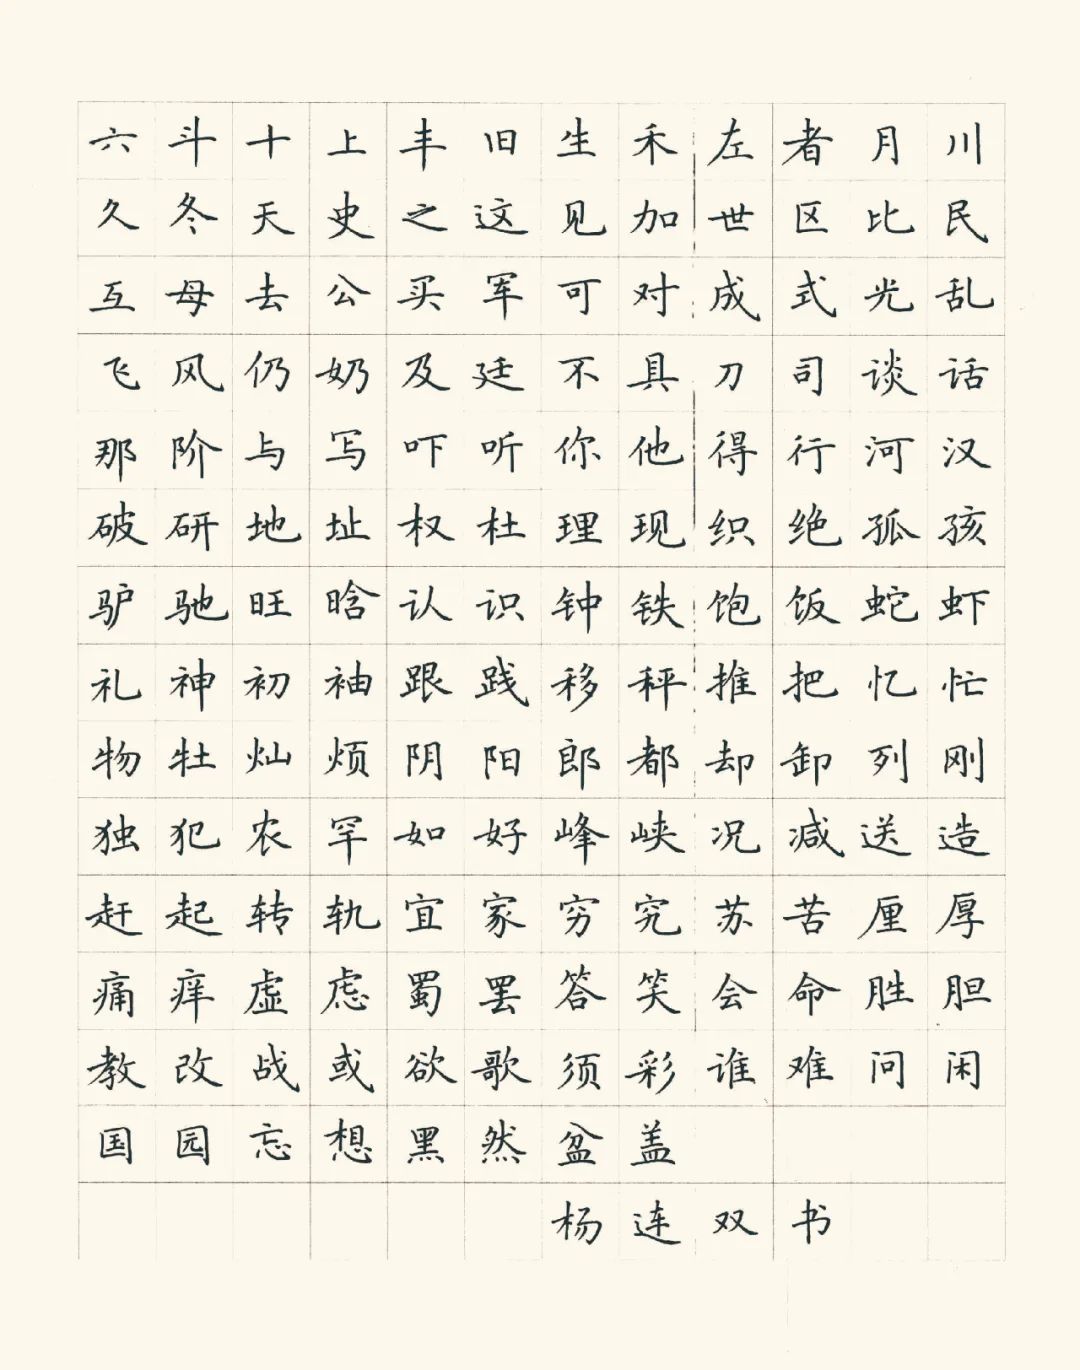 六斗十上丰旧生禾左者月川
久冬天史之这见加世区比民
互母去公买军可对成式光乱
飞风仍奶及廷不具刀司谈话
那阶与写吓听你他得行河汉
破研地址权杜理现织绝孤孩
驴驰旺晗认识钟铁饱饭蛇虾
礼神初袖跟践移秤推把忆忙
物牡灿烦阴阳郎都却卸列刚
独犯农罕如好峰峡况减送造
赶起转轨宜家穷究苏苦厘厚
痛痒虚虑蜀罢答笑会命胜胆
教改战或欲歌须彩谁难问闲
国园忘想黑然盆盖
杨连双书